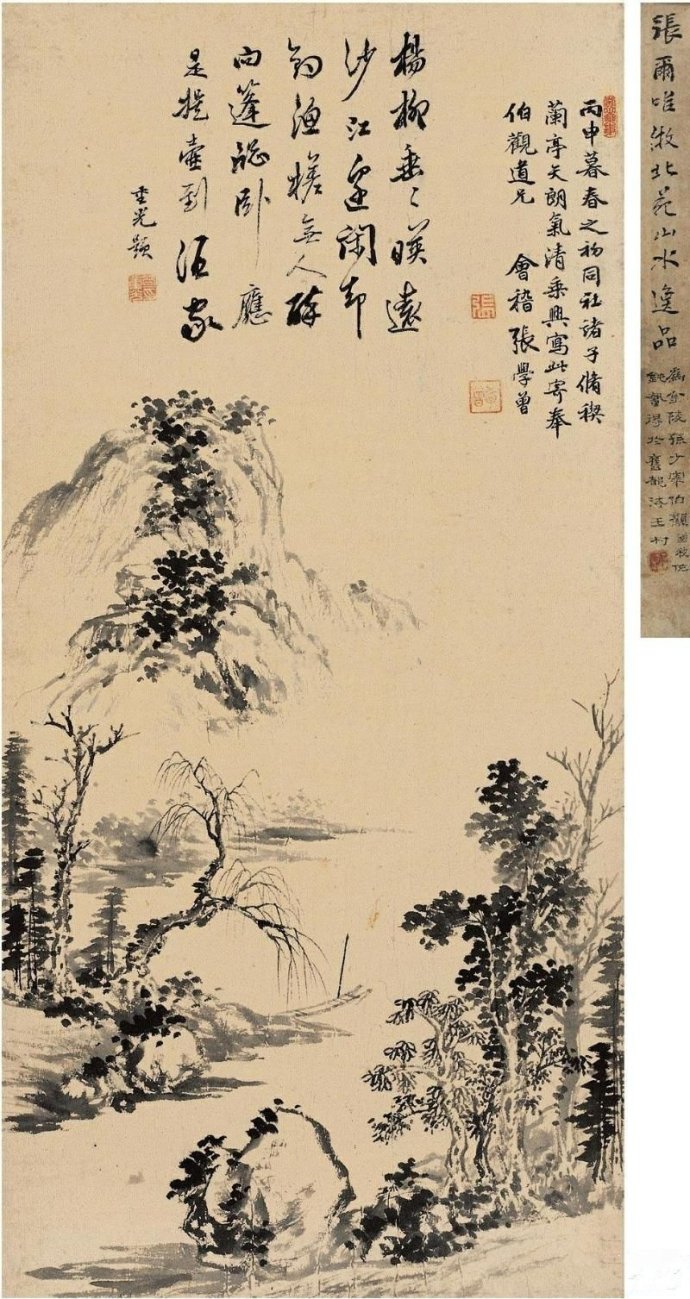 張爾唯倣北苑山水逸品
丙申暮春之初同社諸子脩禊
蘭亭天朗氣清乘興寫此寄奉
伯觀道兄 會稽張學曾
楊柳垂々暎遠
沙江邊閑却
釣漁槎無人醉
向蓬窓卧應
是提壺到酒家
重光題